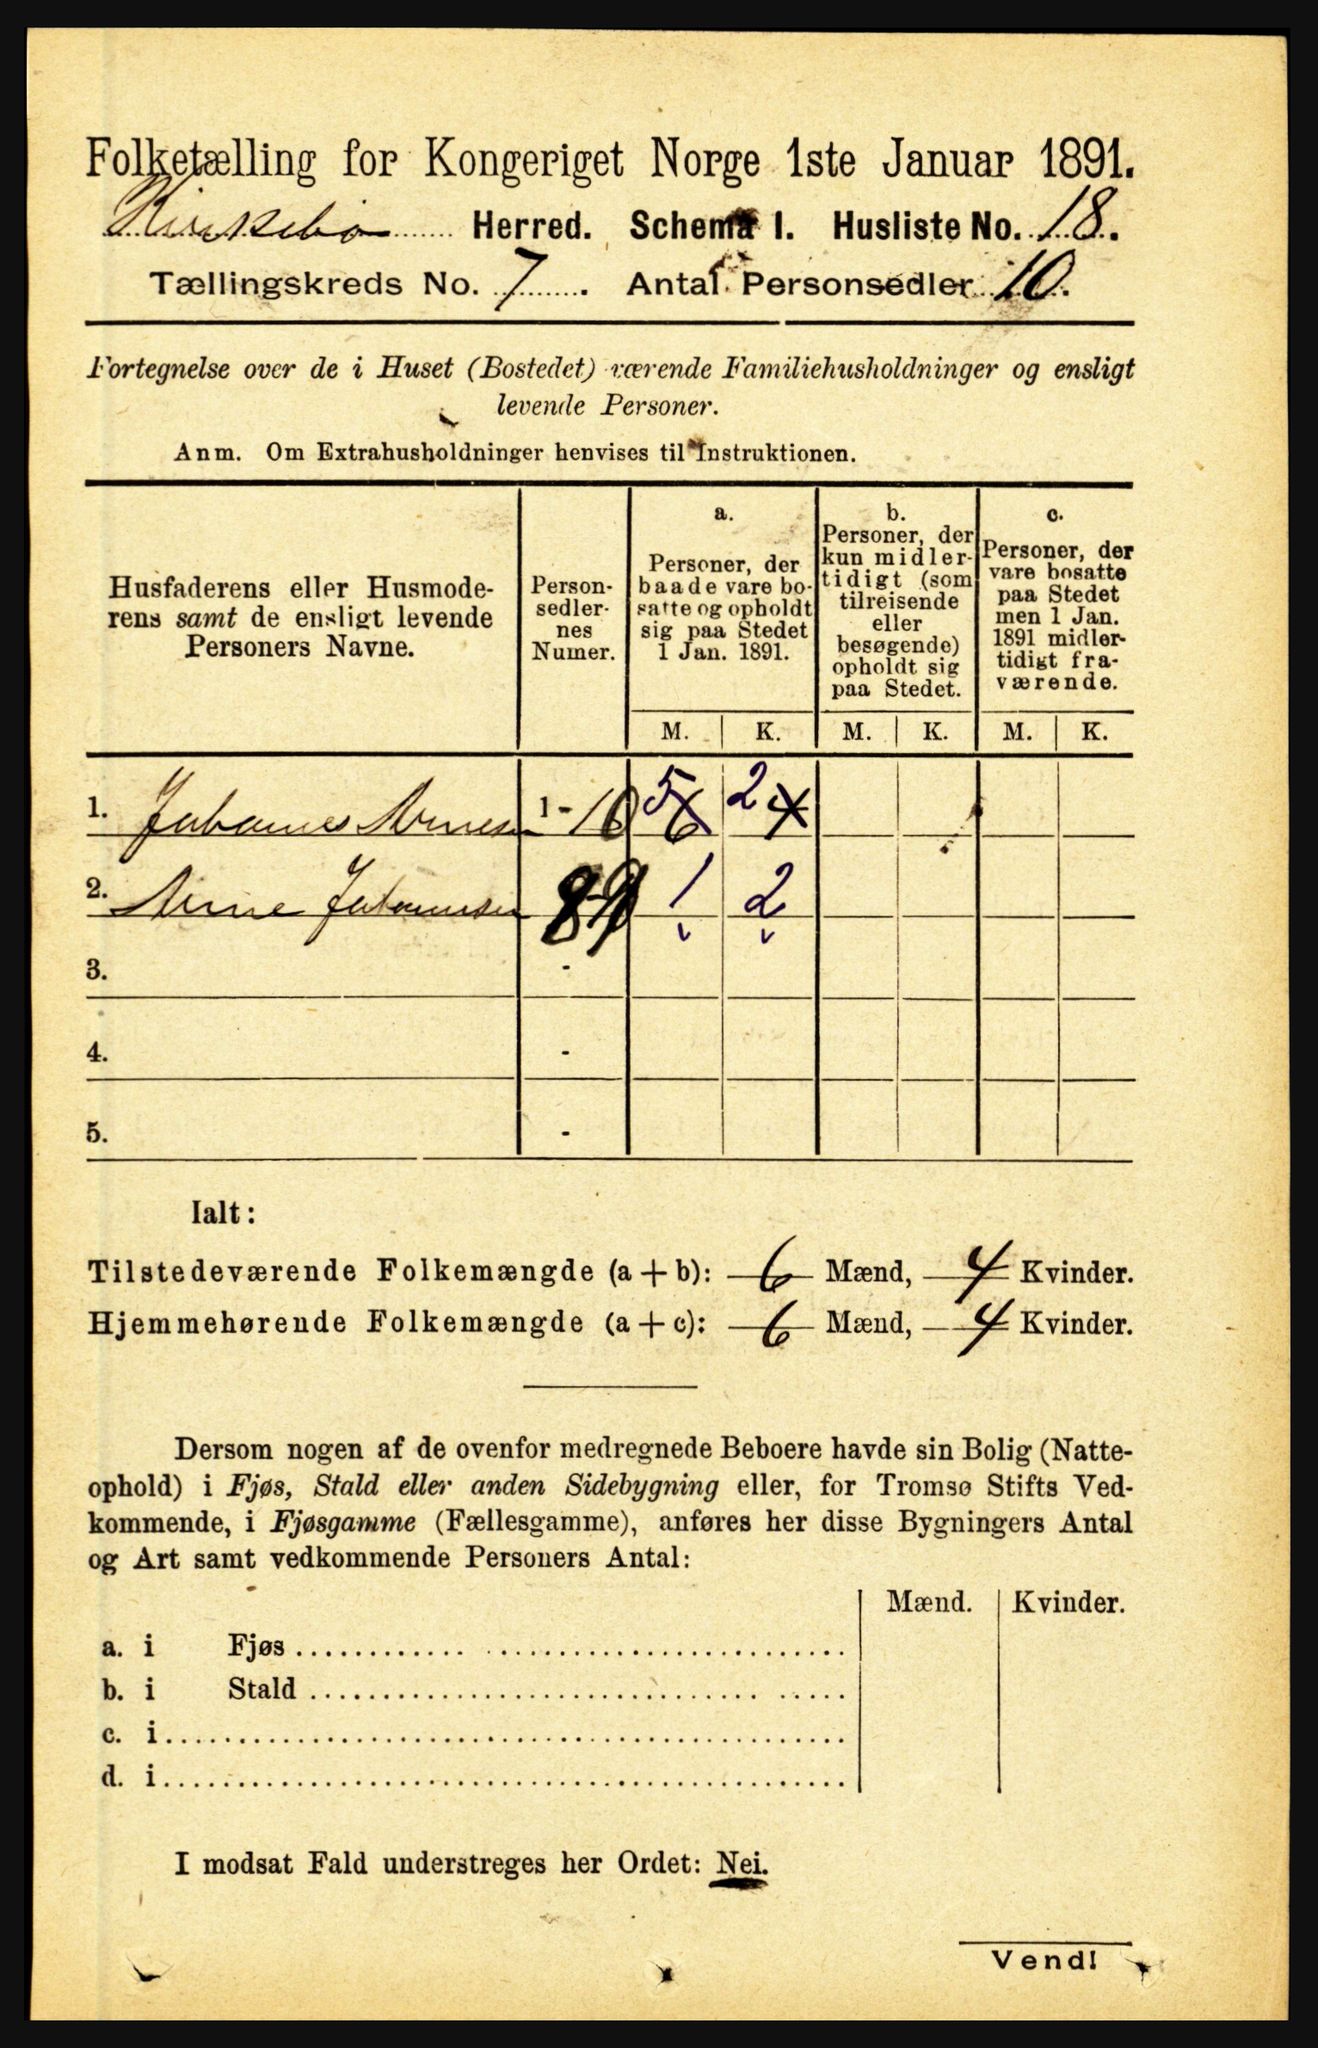 Folketælling for Kongeriget Norge 1ste Januar 1891.
Kirkebø Herred. Schema I. Husliste No. 18.
Tællingskreds No. 7. Antal Personsedler 10.
Fortegnelse over de i Huset (Bostedet) værende Familiehusholdninger og ensligt
levende Personer.
Anm. Om Extrahusholdninger henvises til Instruktionen.
Husfaderens eller Husmode-
rens samt de ensligt levende
Personers Navne.
Person-
sedler-
nes
Numer.
a.
Personer, der
baade vare bo-
satte og opholdt
sig paa Stedet
1 Jan. 1891.
b.
Personer, der
kun midler-
tidigt (som
tilreisende
eller
besøgende)
opholdt sig
paa Stedet.
c.
Personer, der
vare bosatte
paa Stedet
men 1 Jan.
1891 midler-
tidigt fra-
værende.
M. K. M. K. M. K.
1. Johannes Arnesen 1 - 10 5 6 2 4
2. Arne Johannesen 1 2
3. -
4. -
5. -
Ialt:
Tilstedeværende Folkemængde (a + b): 6 Mænd, 4 Kvinder.
Hjemmehørende Folkemængde (a + c): 6 Mænd, 4 Kvinder.
Dersom nogen af de ovenfor medregnede Beboere havde sin Bolig (Natte-
ophold) i Fjøs, Stald eller anden Sidebygning eller, for Tromsø Stifts Ved-
kommende, i Fjøsgamme (Fællesgamme), anføres her disse Bygningers Antal
og Art samt vedkommende Personers Antal:
Mænd. Kvinder.
a. i Fjøs
b. i Stald
c. i
d. i
I modsat Fald understreges her Ordet: Nei.
Vend!